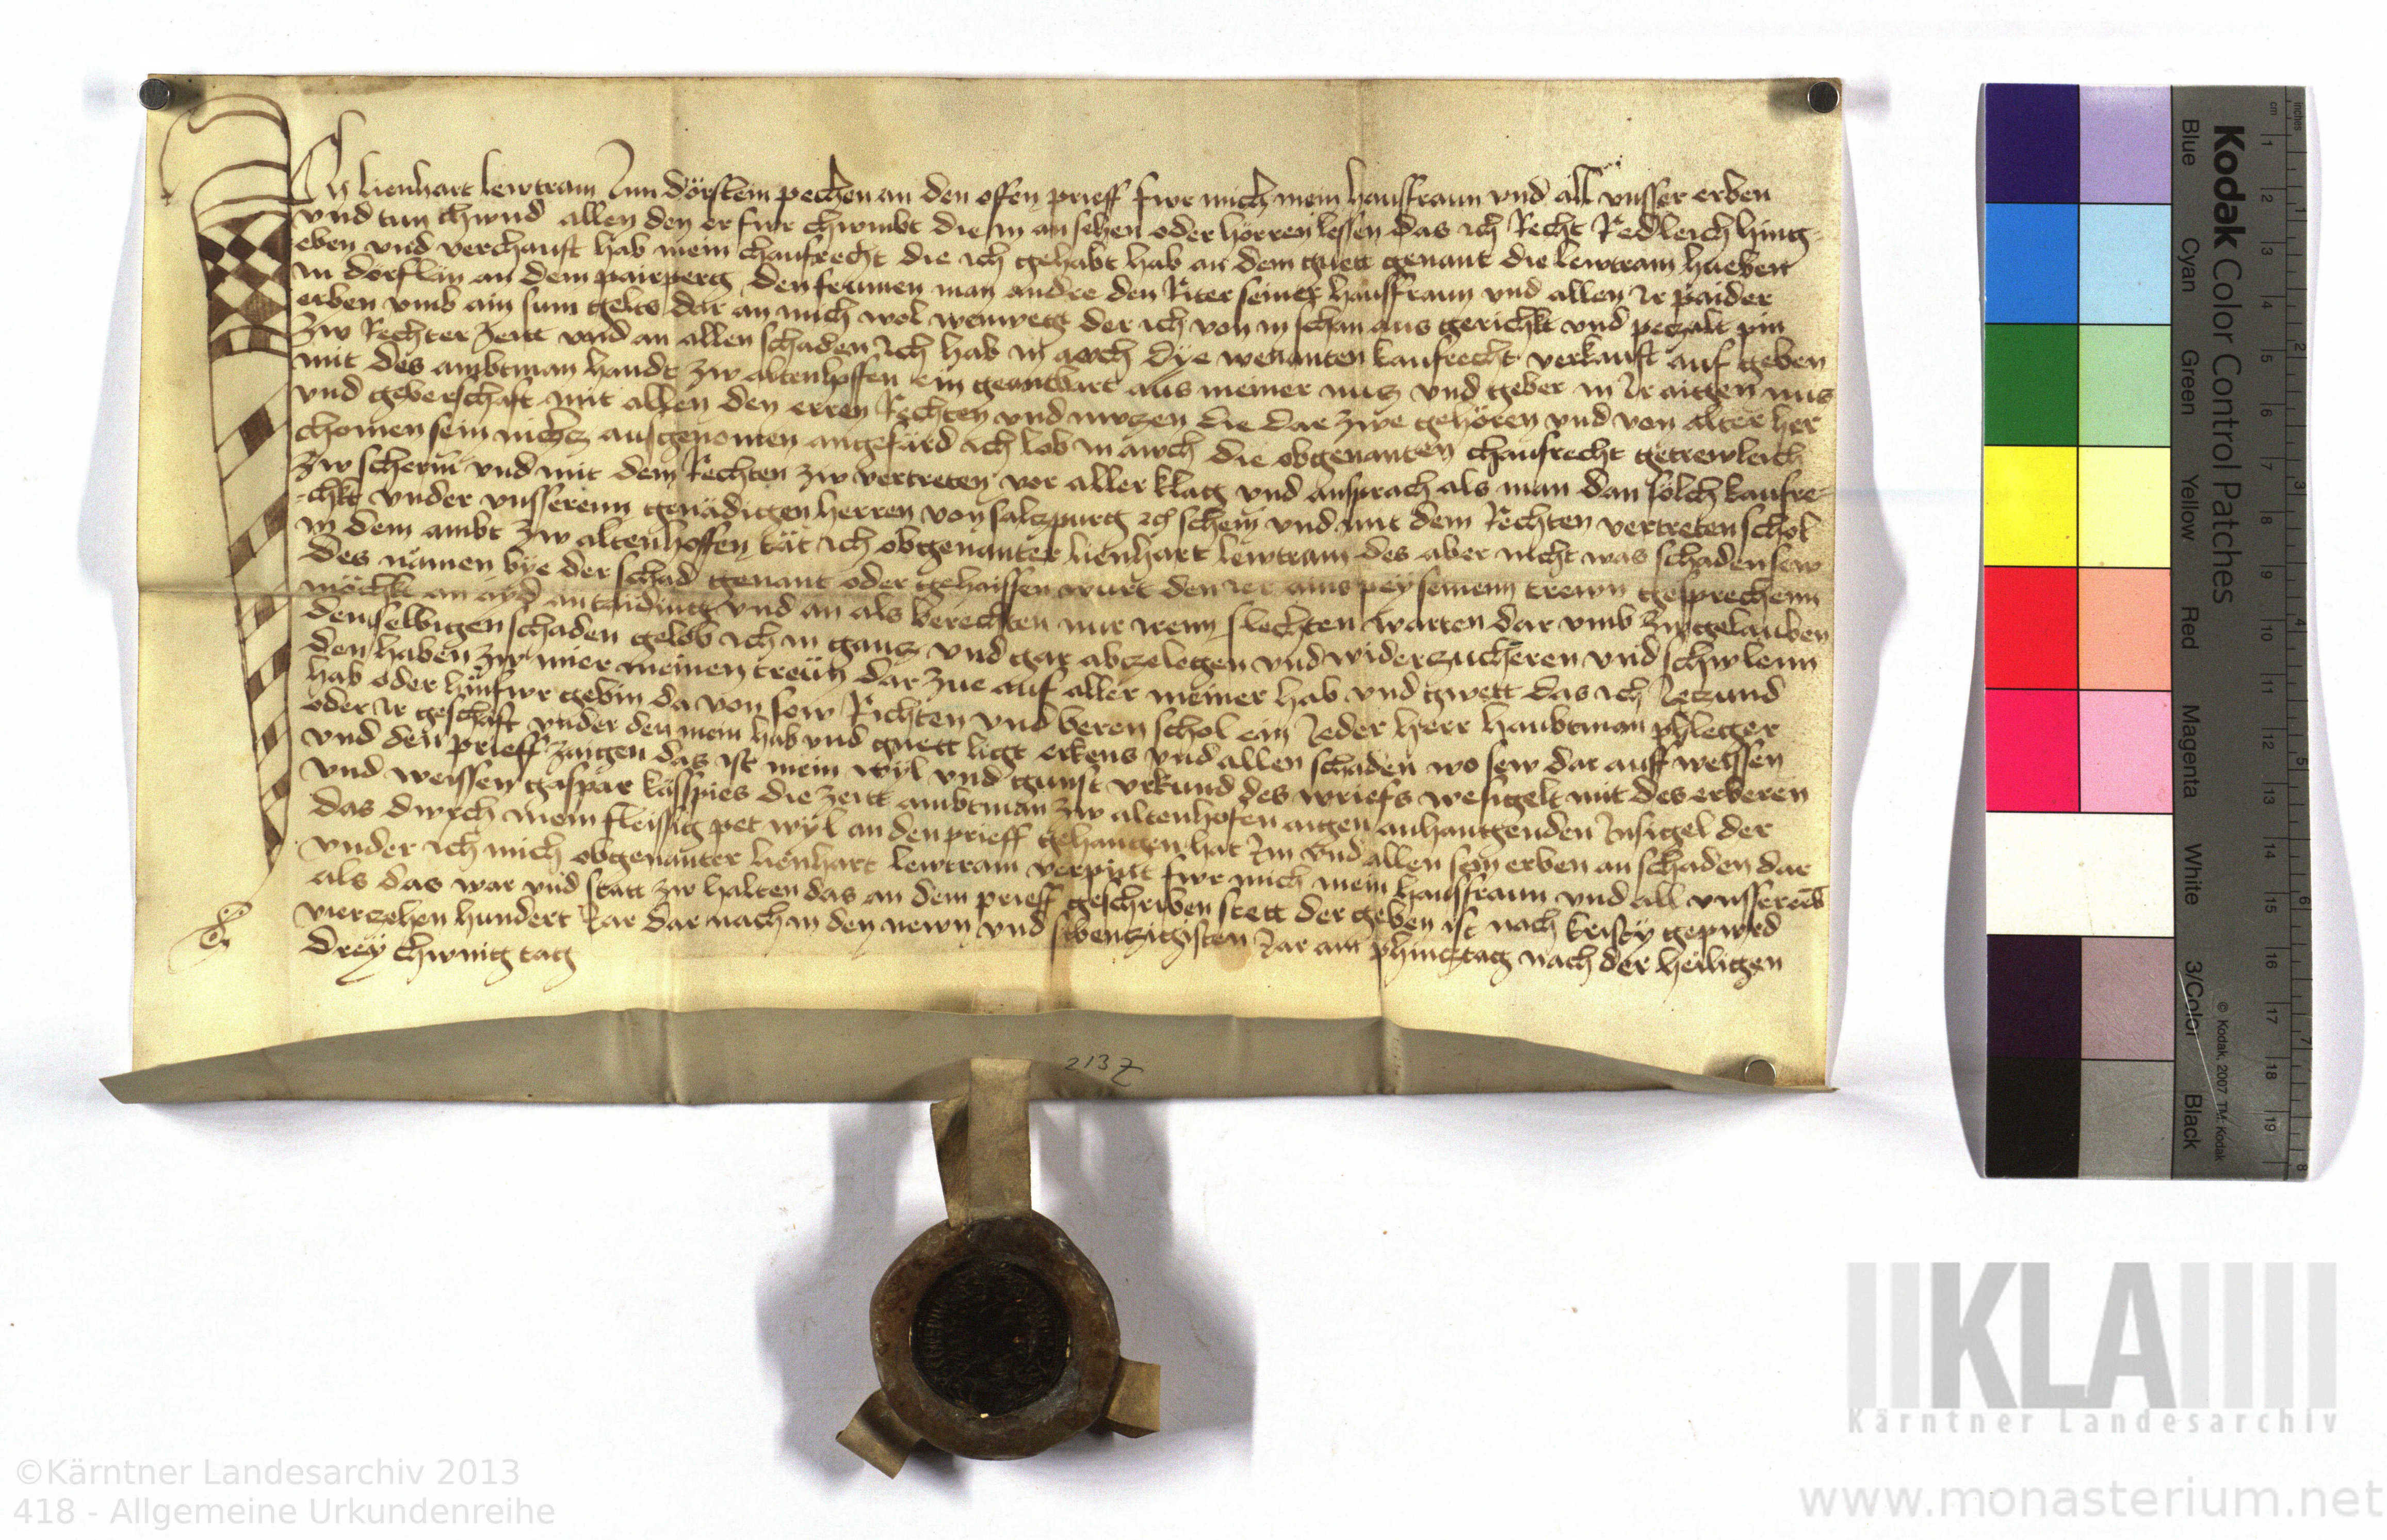 Ich lienhart lewtram Inn dörfleim pechen an den offen prieff fwr mich mein hausfraun vnd all vnsser erben
vnd tun chund allen den er fwr chwmbt die in an sehen oder horren lessen das ich Recht Redleich hing-
eben vnd verchauft hab mein chaufrecht die ich gehabt hab an dem guett genant die lewtram hueben
in dorflin an dem pairperg den frumen man andre den Riter seiner hausfraun vnd allen ir paider
erben vmb ain sum gelts dar an mich wol wenuegt der ich von in schan aus gericht vnd peczalt pin
zw Rechter zeitt vnd an allen schaden Ich hab in awch dye wenanten kaufrecht verkauft auf geben
mit des ambtman handt zw altenhoffen ein geantbart aus meiner nucz vnd geber in ir aigen nucz
vnd geberschaft mit allen den erren Rechten vnd nuczen die dar zwe gehören vnd von alter her
chomen sein nichcz ausgenomen angefard ich lob in awch die obgenanten chaufrecht getrewleich
zw scherm vnd mit dem Rechten zw vertreten vor aller klag vnd ansprach als man dan solch kaufre-
-cht vnder vnsserenn genädigen herren von salczpurg schem vnd mit dem Rechten vertreten schol
in dem ambt zw altenhoffen tät ich obgenanter lienhart lewtram des aber nicht was schaden sew
des namen bye der schad genant oder gehaissen wurt den ier ains pey seinem trewn gesprechenn
möcht an ayd an taiding vnd an als berechten nur irenn slechten warten dar vmb zw gelauben
denselbigen schaden gelob ich in gancz vnd gar abczelegen vnd widerczucheren vnd schwlenn
den haben zw mier meinen treün dar zue auf aller meiner hab vnd gwett das ich Iczund
hab oder hinfwr gebin da von sew Richten vnd beren schol ein Ieder herr haubtman phleger
oder ir geschäft vnder den mein hab vnd guett ligt erkens vnd allen schaden wo sew dar auff weissen
vnd den prieff zaigen das ist mein wyl vnd gunst vrkund des wriefs wesigelt mit des erberen
vnd weissen gaspar kässpies die zeitt ambtman zw altenhofen aigen anhangenden Insigel der
das dwrch mein fleissig pet wyl an den prieff gehangen hat Im vnd allen sein erben an schaden dar
vnder ich mich obgenanter lienhart lewtram verpint fwr mich mein hausfraun vnd all vnsser erb
als das war vnd statt zw halten das an dem prieff geschriben stett der geben ist nach kristy gepurd
vierczehen hundert Iar dar nach in den newn vnd sibenczigisten Iar am phincztag nach der heiligen
dreÿ chwnig tag
213 Z
Kodak Color Control Patches
Blue Cyan Green Yellow Red Magenta White 3/Color Black
© Kodak, 2007 TM: Kodak
cm 1 2 3 4 5 6 7 8 9 10 11 12 13 14 15 16 17 18 19
inches 1 2 3 4 5 6 7 8
KLA
Kärntner Landesarchiv
©Kärntner Landesarchiv 2013
418 - Allgemeine Urkundenreihe
www.monasterium.net